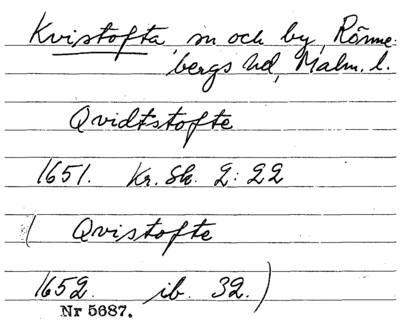 Kvistofta, sn och by, Rönne-
bergs hd, Malm. l.
Qvidtstofte
1651. Kr. Sk. 2: 22
( Qvistofte
1652. ib. 32. )
Nr 5687.